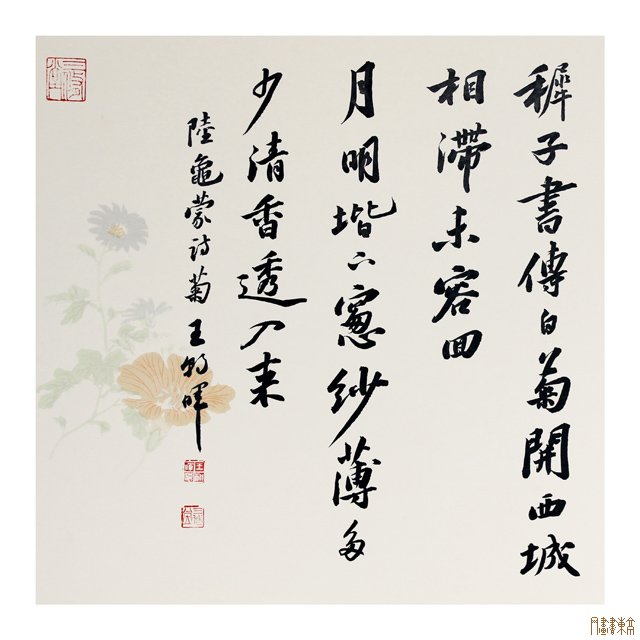 稺子書傳白菊開西城
相滯未容回
月明堦下窻紗薄多
少清香透入来
陸龜蒙诗菊 王朝暉